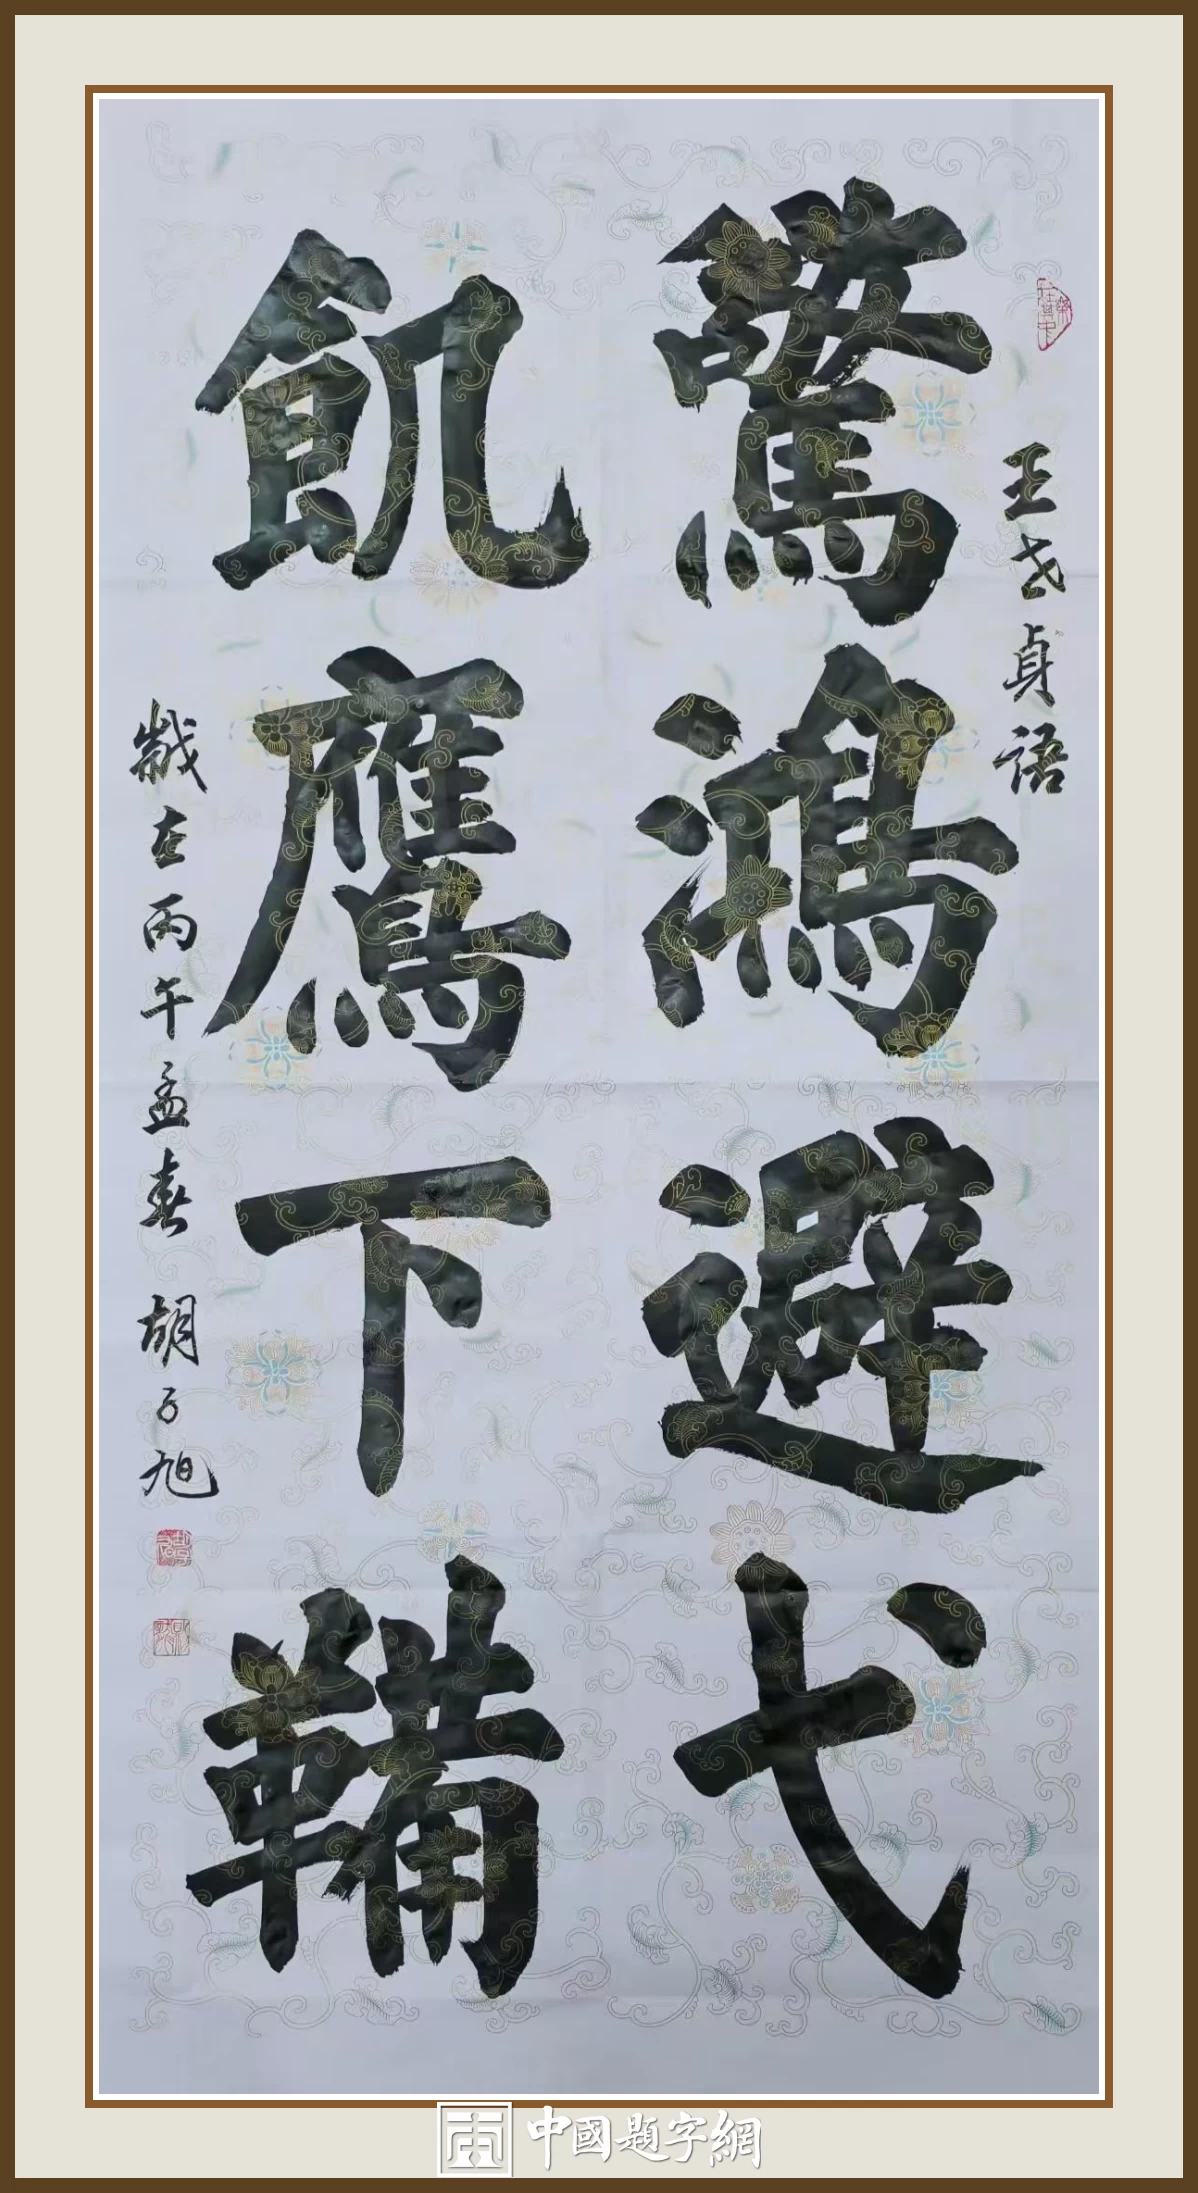 王世貞語
驚鴻避弋
飢鷹下鞴
歲在丙午孟春 胡子旭
中國題字網